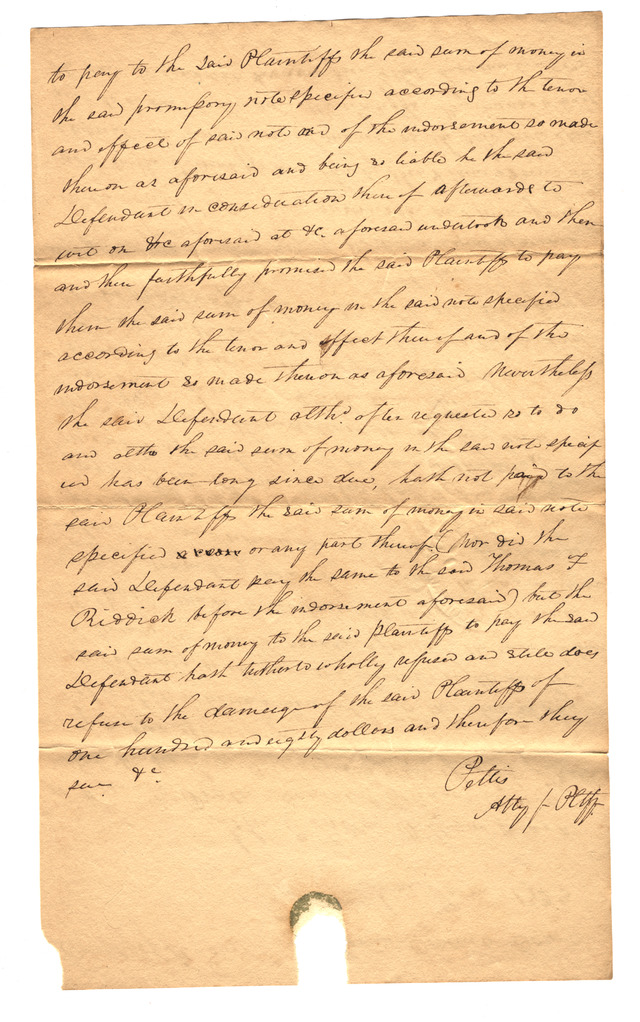 to pay to the said Plaintiffs the said sum of money in
the said promissory note specified according to the tenor
and effect of said note and of the indorsement so made
thereon as aforesaid and being so liable he the said
Defendant in consideration thereof afterwards to
wit on &c aforesaid at &c aforesaid undertook and then
and there faithfully promised the said Plaintiffs to pay
them the said sum of money in the said note specified
according to the tenor and effect thereof and of the
indorsement so made thereon as aforesaid Nevertheless
the said Defendant altho' often requested so to do
and altho the said sum of money in the said note specifi
ied has been long since due, hath not paid to the
said Plaintiffs the said sum of money in said note
specified or any part thereof (Nor did the
said Defendant pay the same to the said Thomas F
Riddick before the indorsement aforesaid) but the
said sum of money to the said plaintiffs to pay the said
Defendant hath hitherto wholly refused and still does
refuse to the damage of the said Plaintiffs of
one hundred and eighty dollars and therefore they
sue &c
Pettis
Atty f Pltff